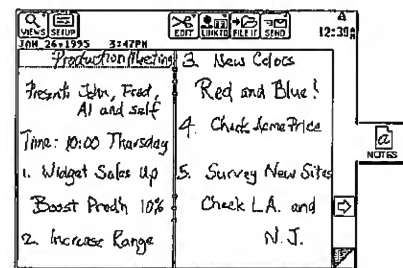 VIEWS SETUP EDIT LINK TO FILE IT SEND 12:30
JAN 26,1995 3:47PM
Production Meeting
Present: John, Fred,
Al and self
Time: 10:00 Thursday
1. Widget Sales Up
Boost Prod'n 10%
2. Increase Range
3. New Colors
Red and Blue!
4. Check Acme Price
5. Survey New Sites
Check L.A. and
N.J.
a
NOTES